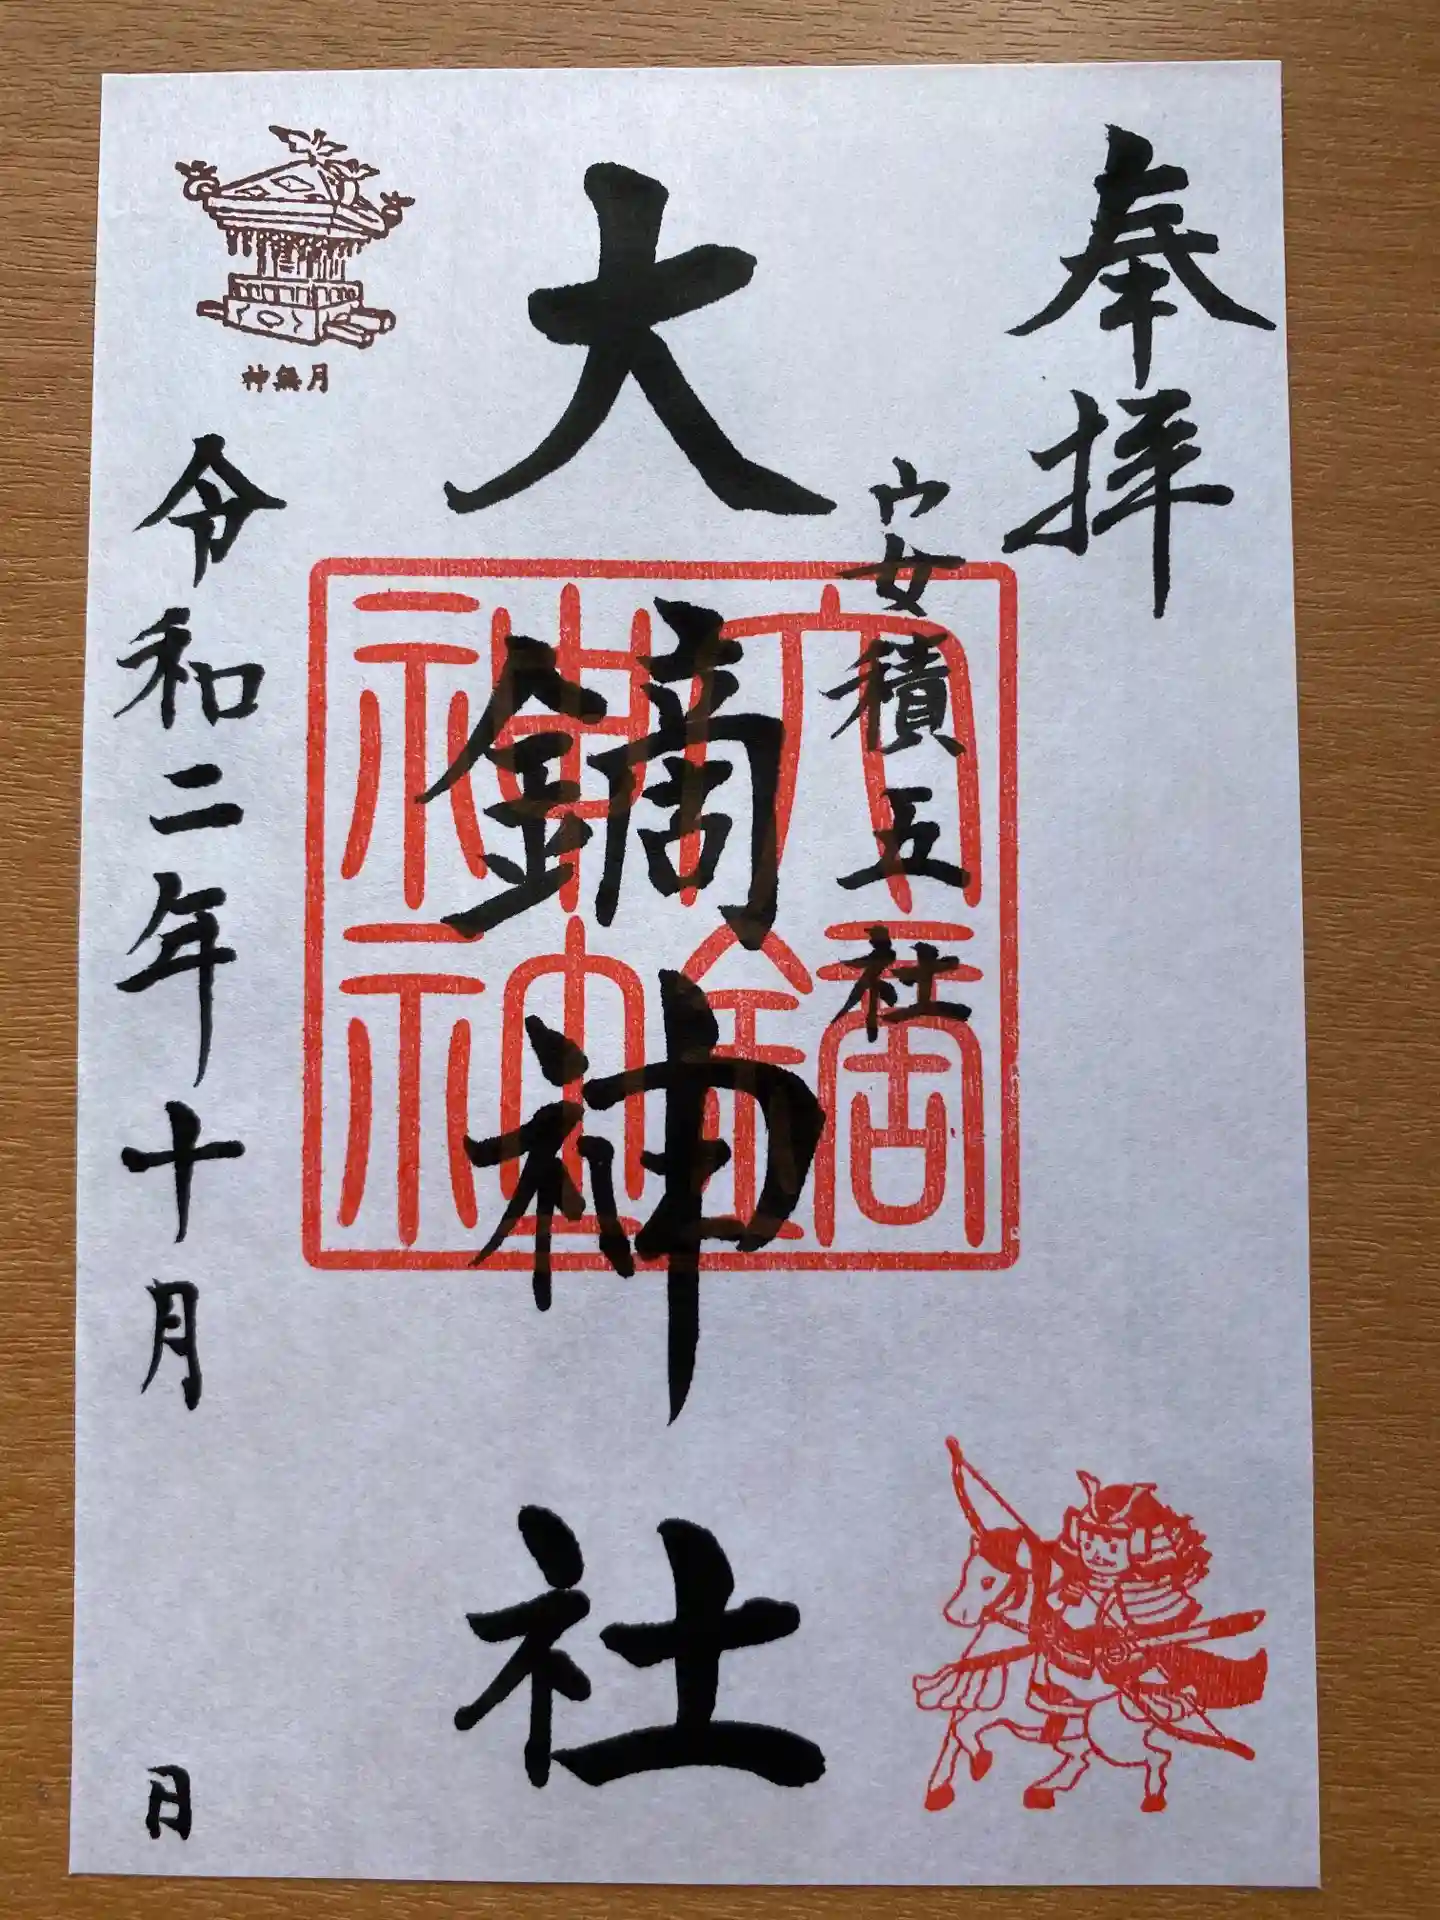 奉拝
安積五社
大鏑神社
神無月
令和二年十月 日